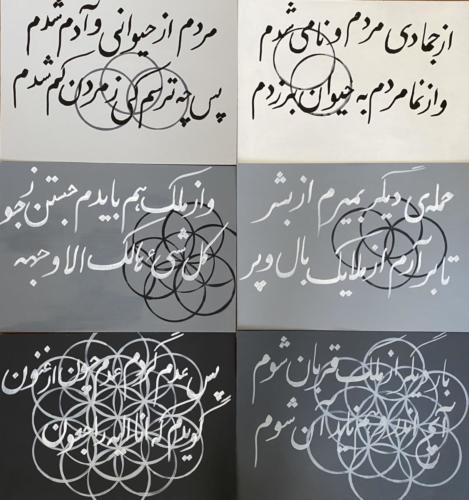 از جمادی مردم و نامی شدم
واز نما مردم به حیوان برزدم
مردم از حیوانی و آدم شدم
پس چه ترسم کی ز مردن کم شدم
حمله‌ی دیگر بمیرم از بشر
تا برآرم از ملایک بال و پر
واز ملک هم بایدم جستن ز جو
کل شیء هالک الا وجهه
بار دیگر از ملک قربان شوم
آنچ اندر وهم ناید آن شوم
پس عدم گردم عدم چون ارغنون
گویدم که انا الیه راجعون